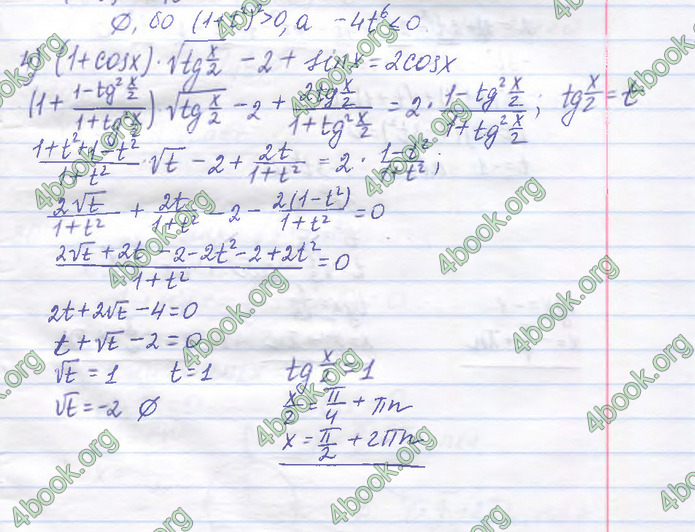 ∅, бо (1+t²)²>0, а −4t⁶≤0.
(1+cosx)·√(tg x/2) − 2 + sinx = 2cosx
(1 + (1−tg² x/2)/(1+tg² x/2))·√(tg x/2) − 2 + (2tg x/2)/(1+tg² x/2) = 2·(1−tg² x/2)/(1+tg² x/2); tg x/2 = t
(1+t²+1−t²)/(1+t²)·√t − 2 + 2t/(1+t²) = 2·(1−t²)/(1+t²);
2√t/(1+t²) + 2t/(1+t²) − 2 − 2(1−t²)/(1+t²) = 0
(2√t + 2t − 2 − 2t² − 2 + 2t²)/(1+t²) = 0
2t + 2√t − 4 = 0
t + √t − 2 = 0
√t = 1 t = 1
√t = −2 ∅
tg x/2 = 1
x/2 = π/4 + πn
x = π/2 + 2πn
4book.org